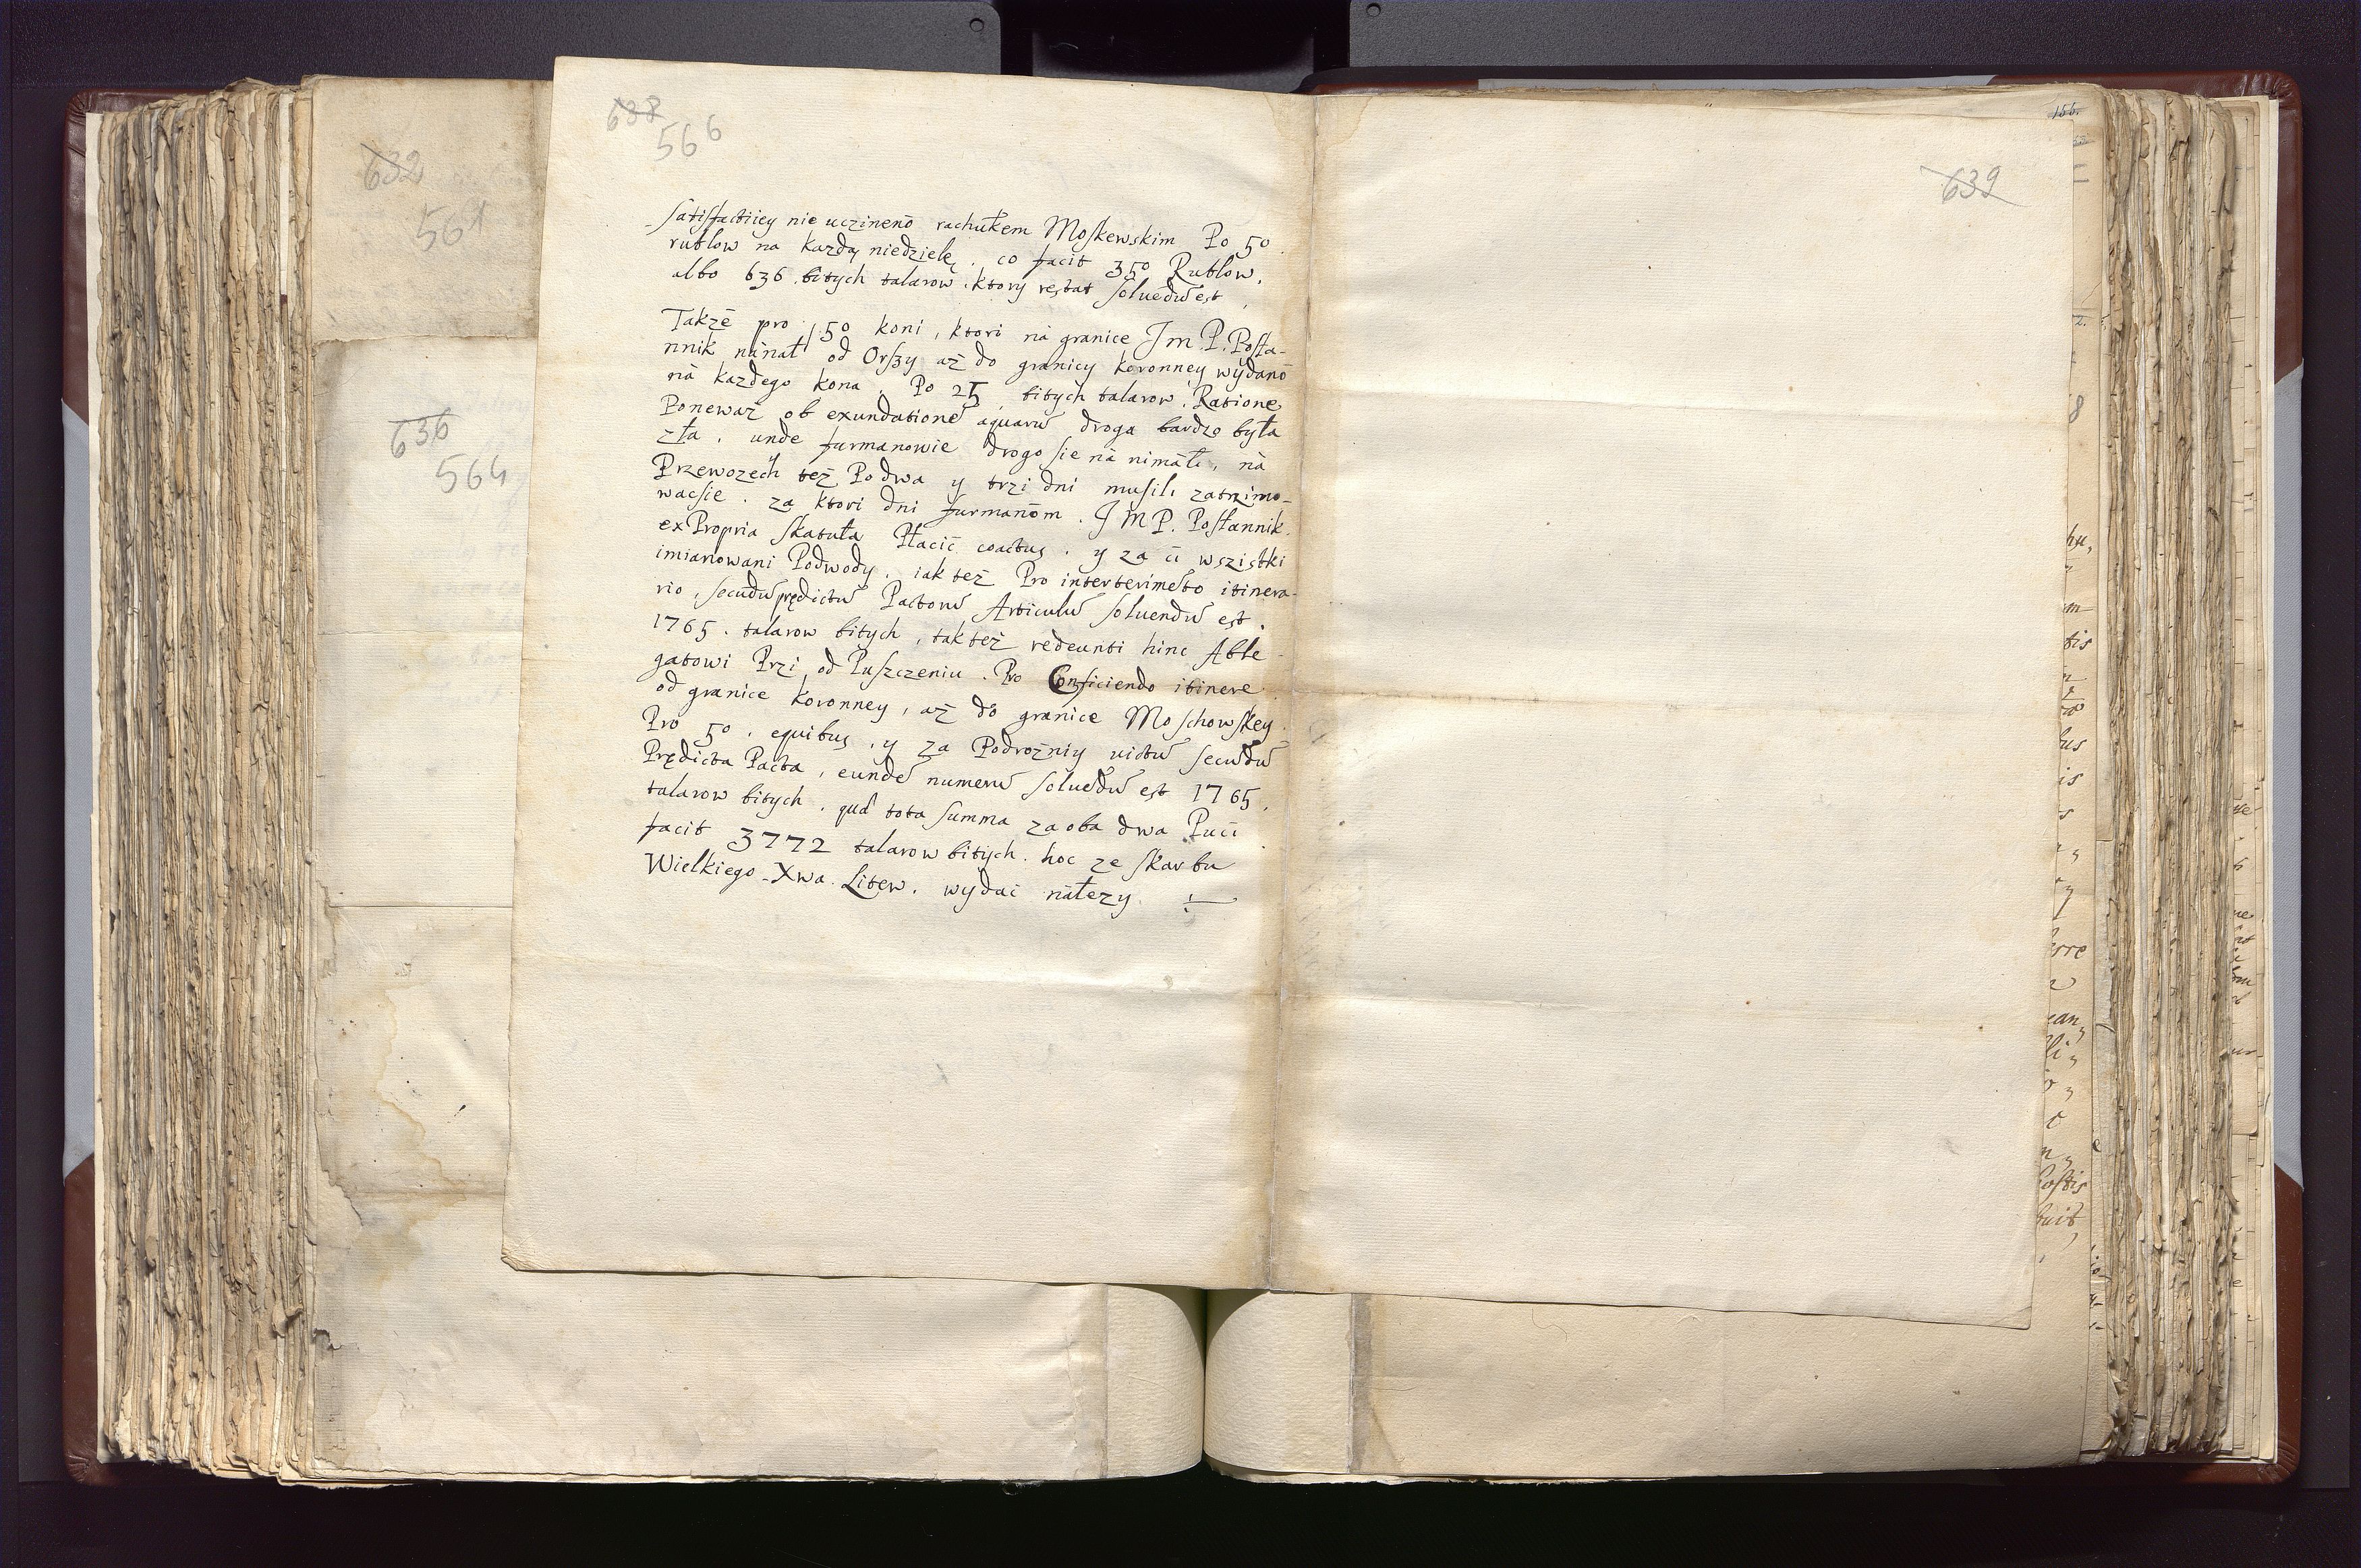 632
561
636
564
638
566
Satisfactiiey nie uczineno rachukem Moskewskim Po 50
rublow na kazdą niedzielę. co facit 350 Rublow,
albo 636 bitych talarow. ktory restat Soluedũ est,
Takze pro 50 koni, ktori na granice J m. P. Posła-
nnik nánał od Orszy aż do granicy koronney wydano
ná kazdego kona. Po 25 bitych talarow. Ratione
Poneważ ob exundationẽ aquarũ droga bardzo była
zła. unde furmanowie drogo sie ná nimáli, ná
Przewozech też Po dwa y trzi dni musili zatrzimo-
wacsie. za ktori dni furmanom. J M P. Posłannik.
ex Propria Skatuła Płacić coactus. y za ci wszistki
imianowani Podwody. iak też Pro interterimẽto itinera-
rio, Secudũ prędictũ Pactorũ Articulũ Soluendũ est.
1765. talarow bitych, tak też redeunti hinc Able-
gatowi Przi od Puszczeniu. Pro Conficiendo itinere
od granice koronney, aż do granice Moschowskey.
Pro 50. equibus. y za Podrożniy uictũ Secũdũ
Prędicta Pacta, eundẽ numerũ Soluẽdũ est 1765.
talarow bitych. qud tota Summa za oba dwa Puci
facit 3772 talarow bitych. hoc ze Skarbu
Wielkiego Xwa. Litew. wydai náłezy.
155.
639